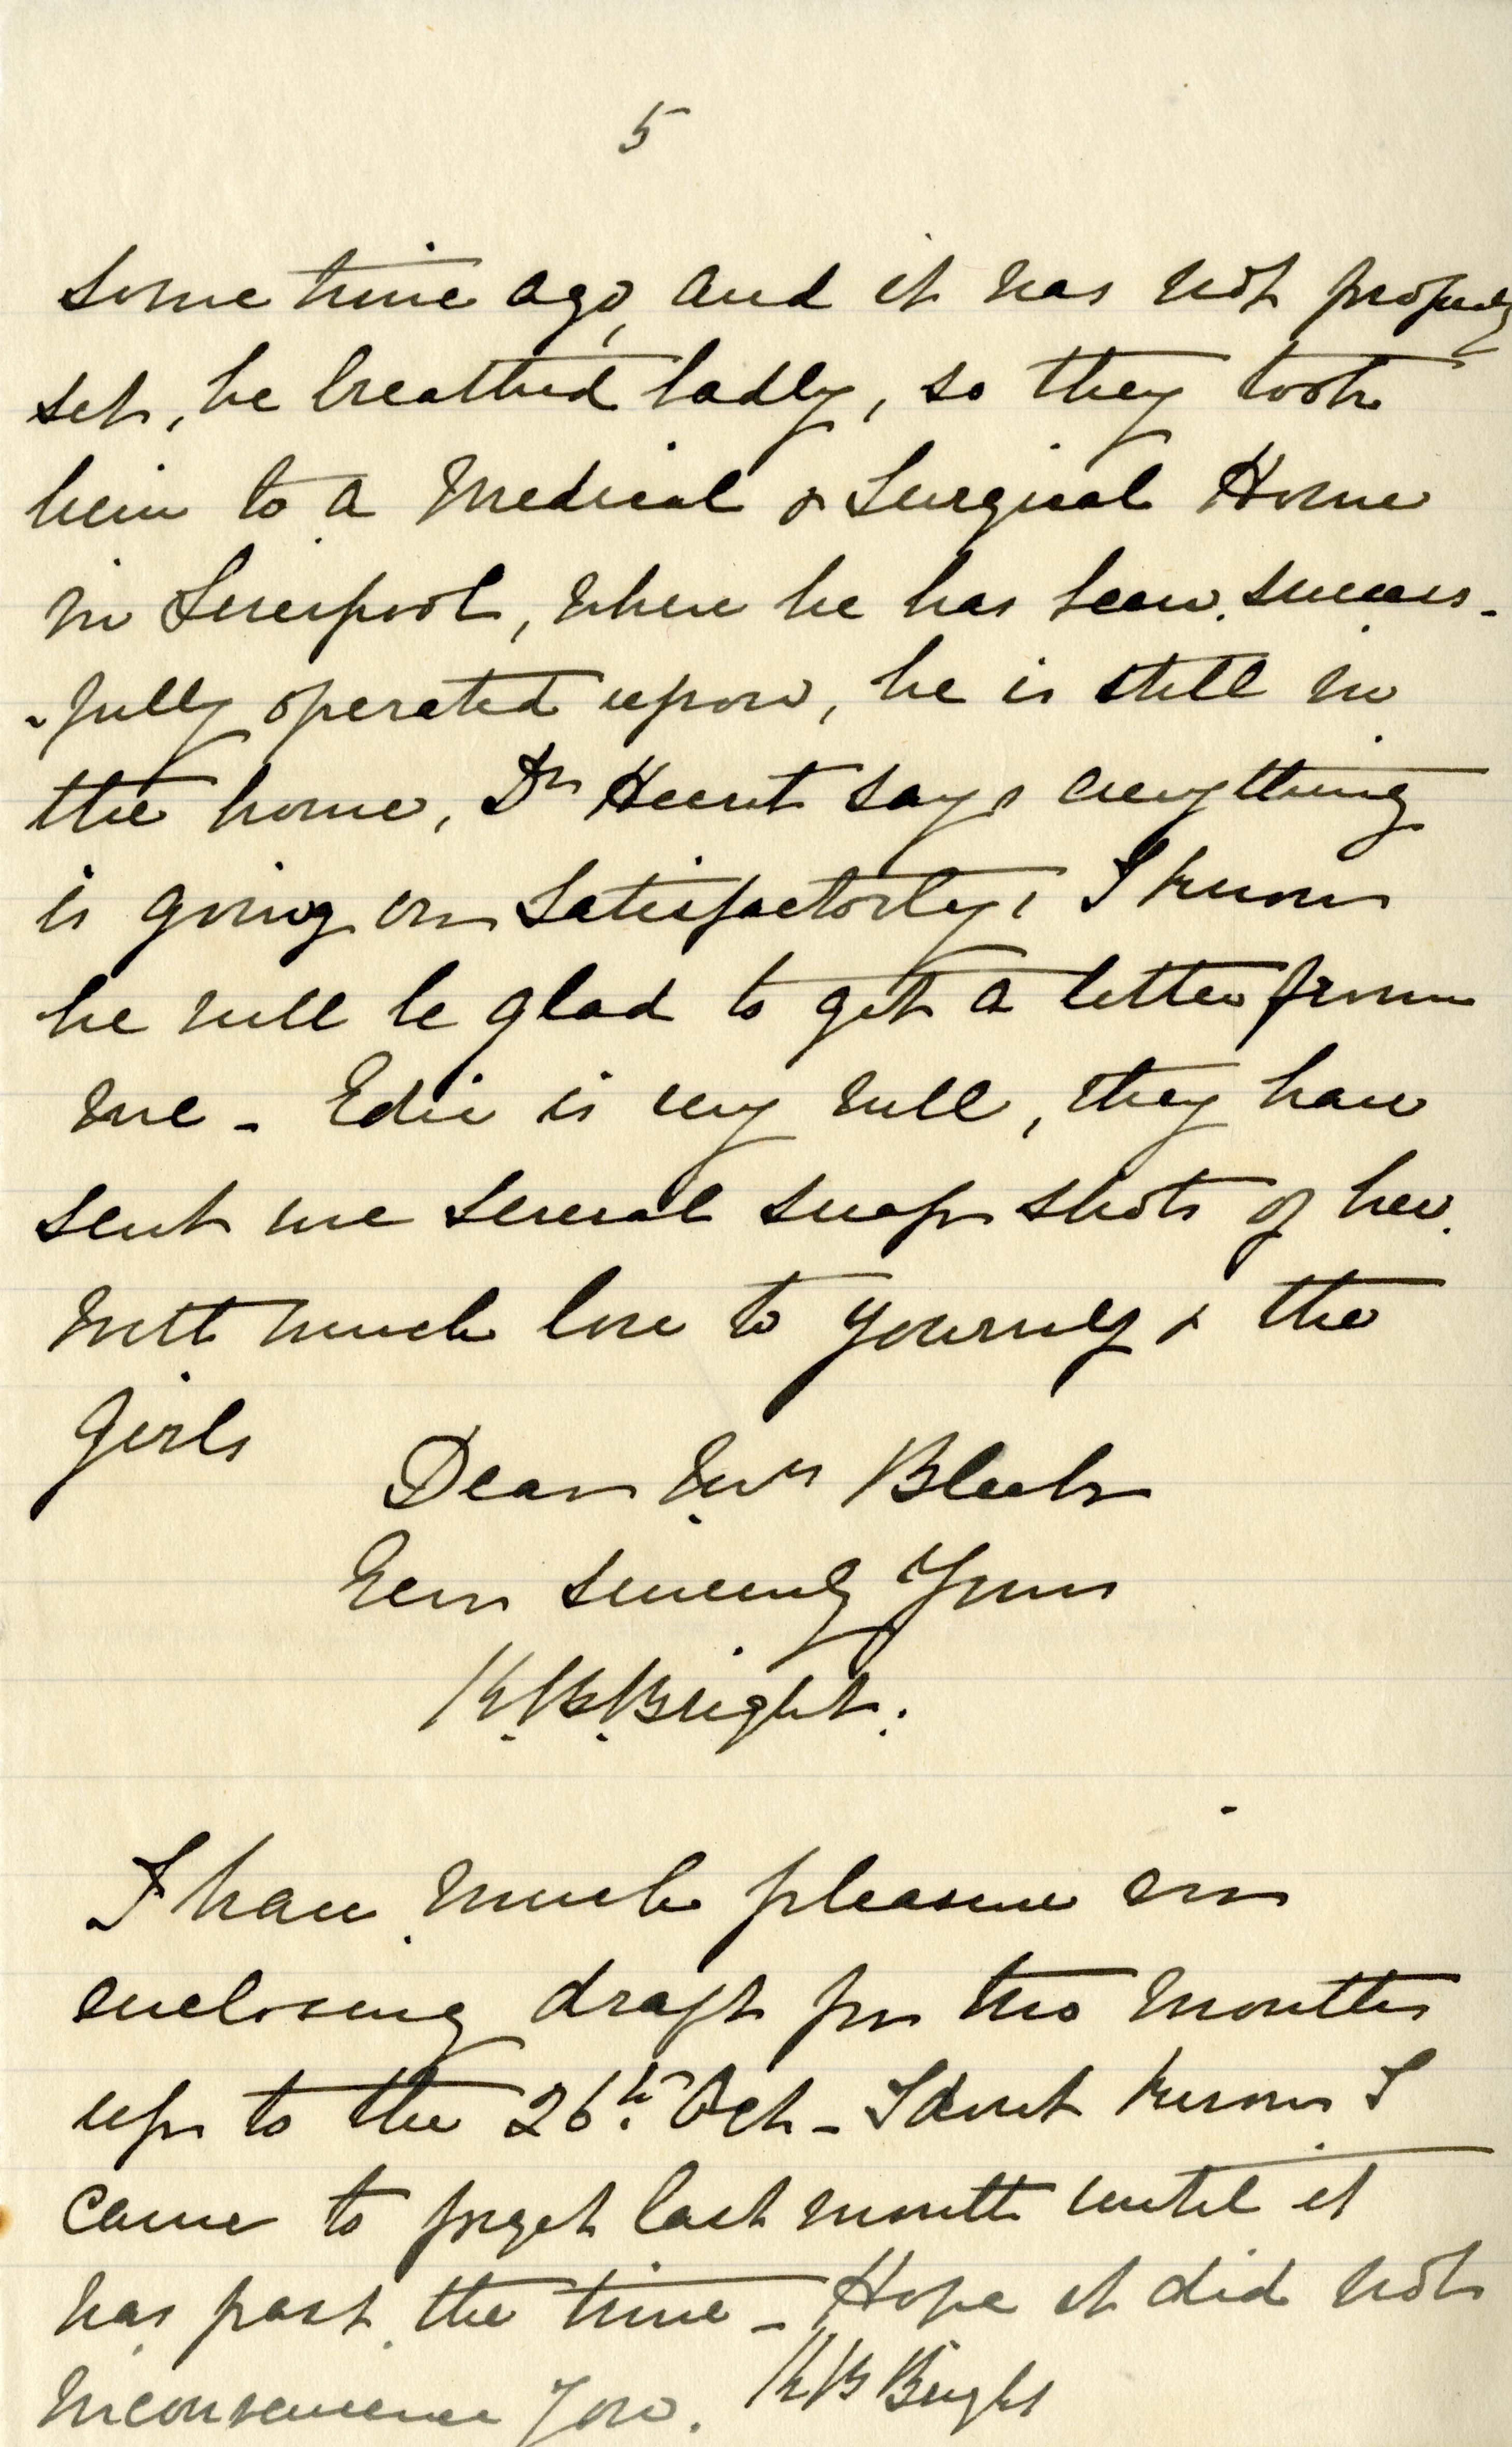 5
some time ago, and it was not properly
set, he breathed badly, so they took
him to a Medical & Surgical Home
in Liverpool, where he has been success-
-fully operated upon, he is still in
the home, Dr Hunt says everything
is going on satisfactorly, I know
he will be glad to get a letter from
me - Edie is very well, they have
sent me several snap shots of her.
With much love to yourself & the
Girls
Dear Mrs Bleek
Very sincerely Yours
K.B.Bright.
I have much pleasure in
enclosing draft for two months
up to the 26th. Oct - I dont know I
came to forget last month until it
was past the time - Hope it did not
inconvenience you. KB Bright